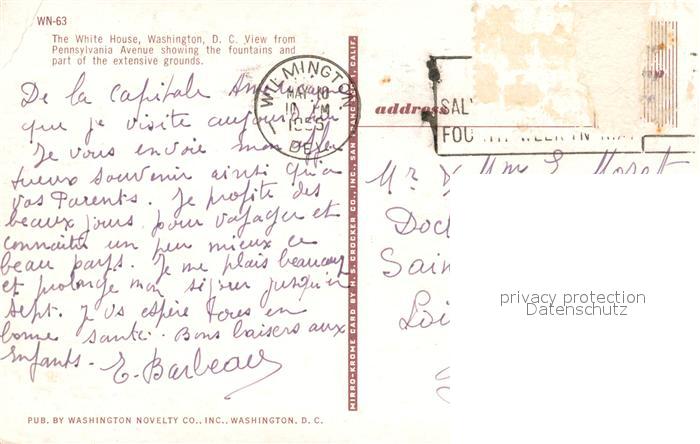 WN-63
The White House, Washington, D. C. View from
Pennsylvania Avenue showing the fountains and
part of the extensive grounds.
De la capitale Américaine
que je visite aujourd'hui
Je vous envoie mon affec
tueux souvenir ainsi qu'a
vos Parents. Je profite des
beaux jours pour voyager et
connaitre un peu mieux ce
beau pays. Je me plais beaucoup
et prolonge mon séjour jusqu'en
Sept. J Vs espère tous en
bonne santé. Bons baisers aux
Enfants. E. Barbeau
PUB. BY WASHINGTON NOVELTY CO., INC., WASHINGTON, D. C.
MIRRO-KROME CARD BY H. S. CROCKER CO., INC., SAN FRANCISCO 1, CALIF.
WILMINGTON
MAY 10
10 PM
1955
DEL
address
SAL
FOU
Mr
Doc
Sain
Loi
privacy protection
Datenschutz